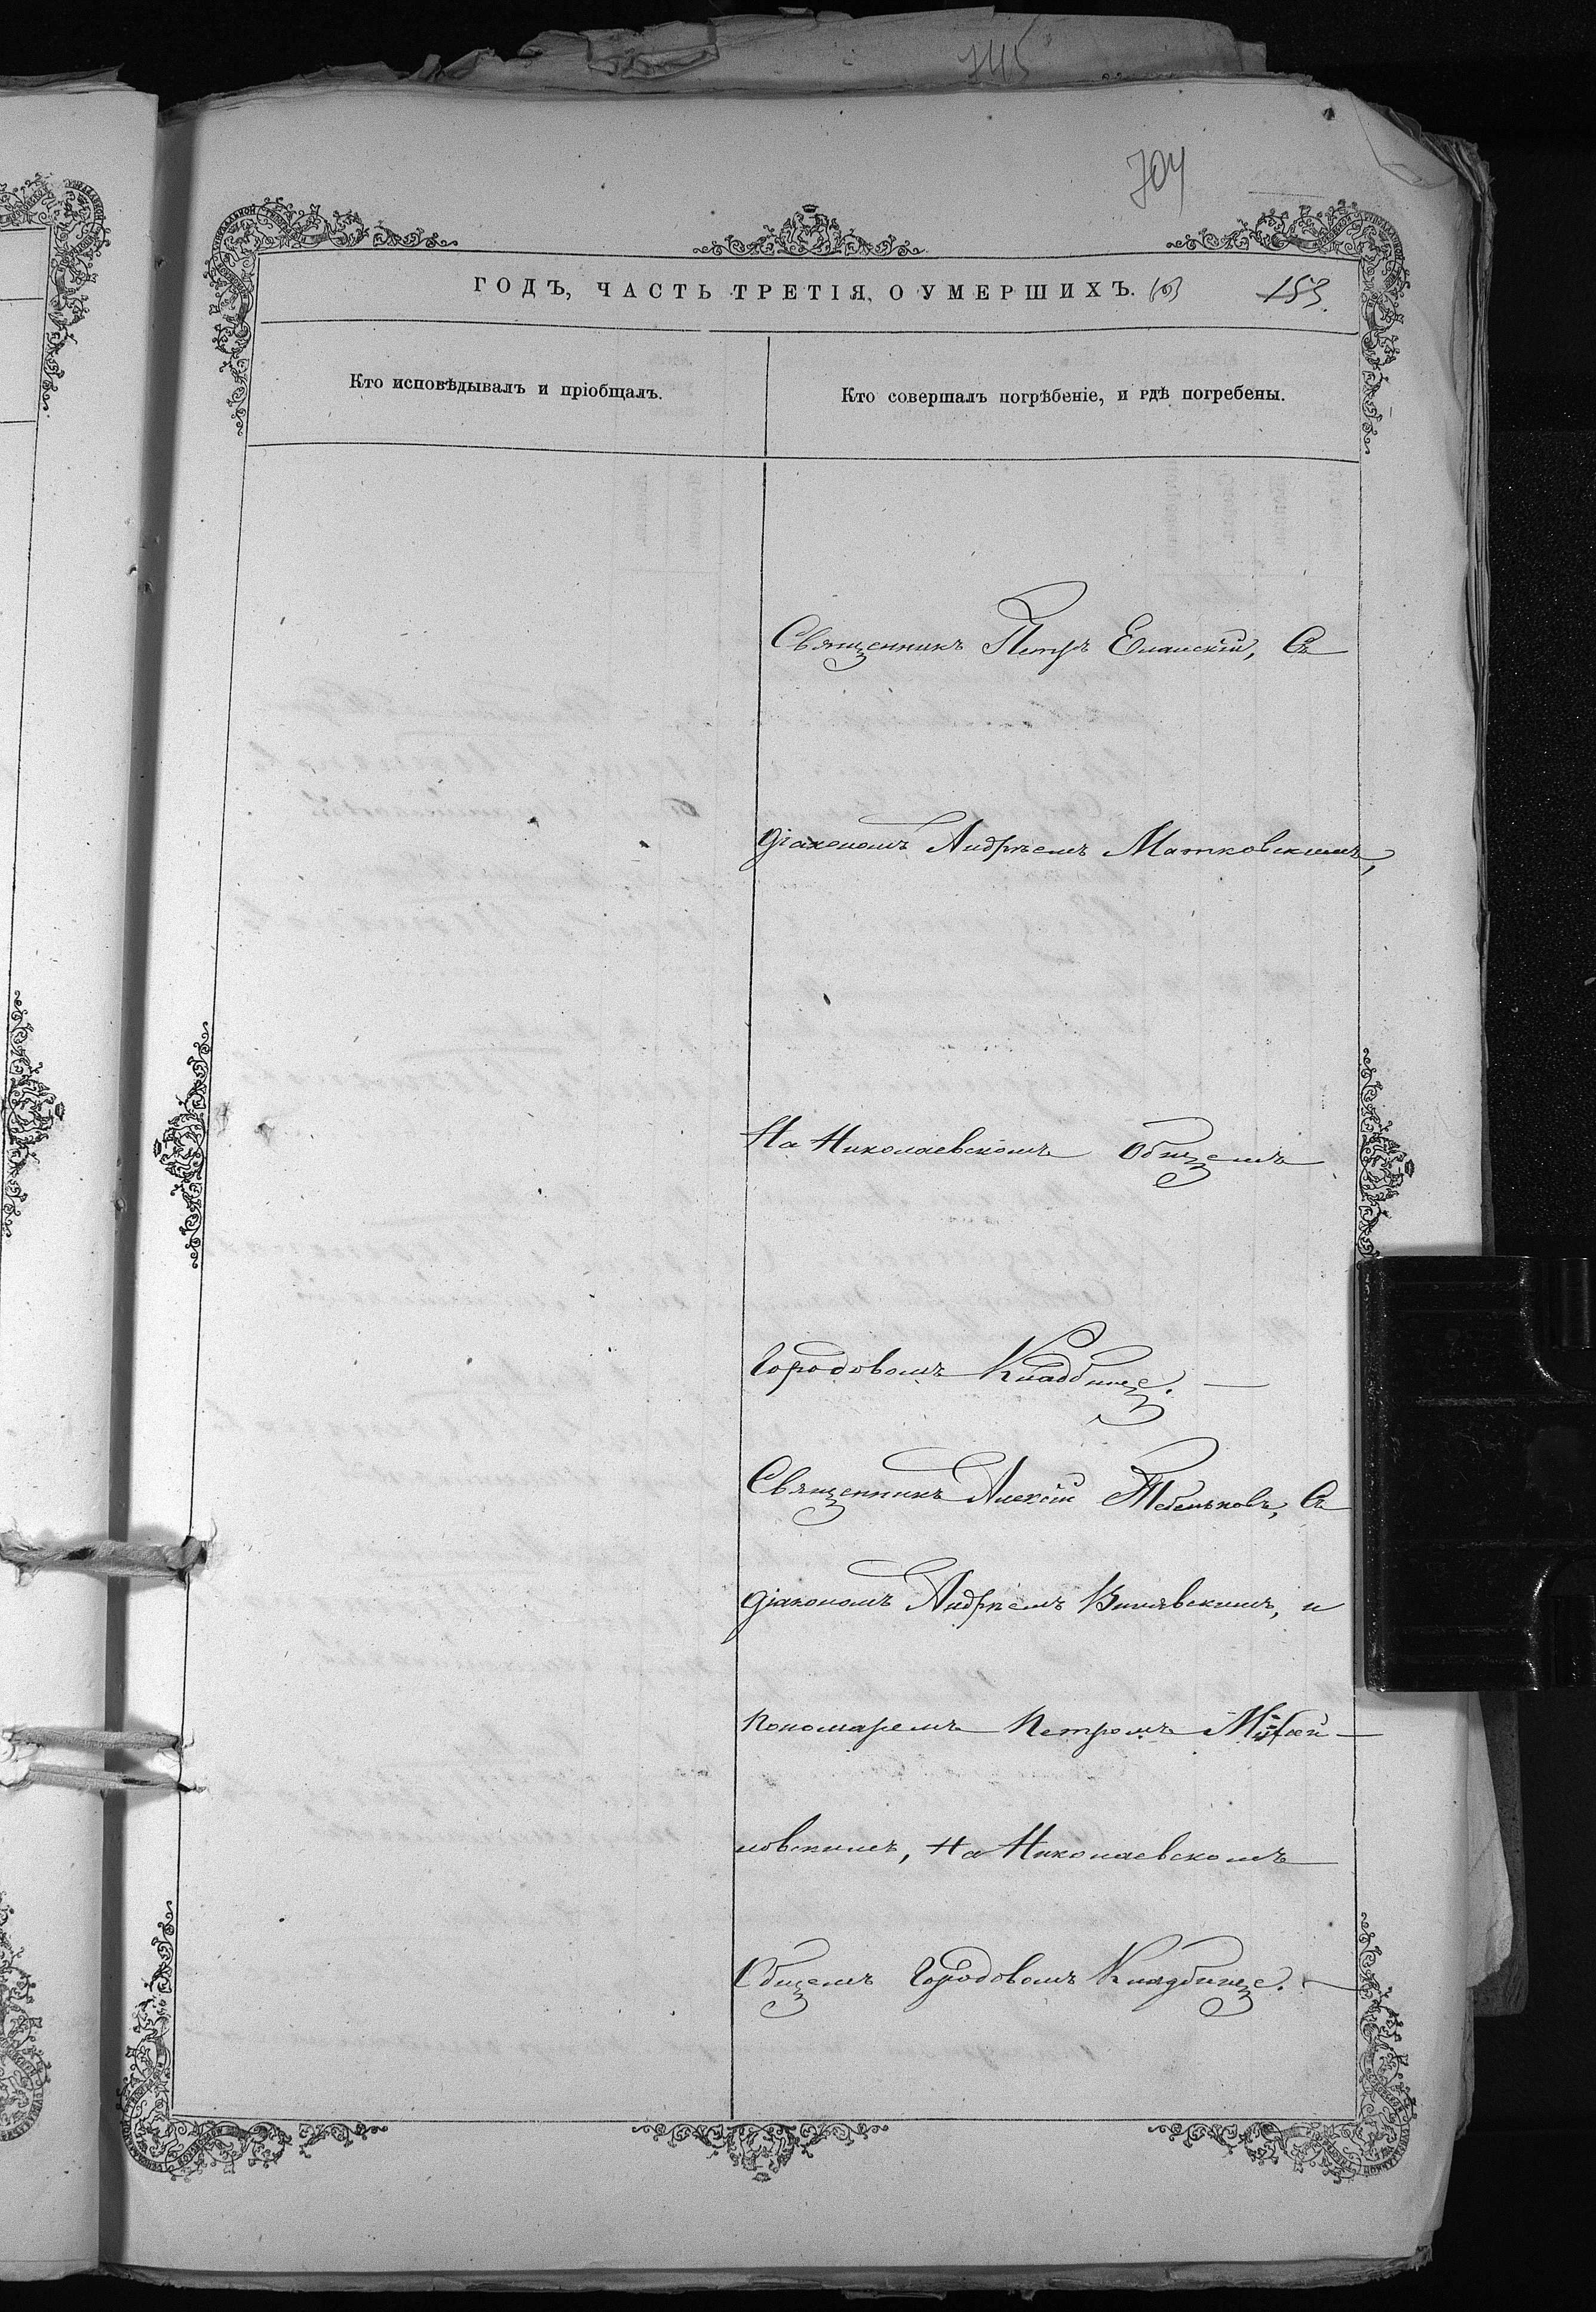 745
704
ГОДЪ, ЧАСТЬ ТРЕТІЯ, О УМЕРШИХЪ. 153.
Кто исповѣдывалъ и пріобщалъ.
Кто совершалъ погрѣбеніе, и гдѣ погребены.
Священникъ Петръ Еланскій, Съ
діакономъ Андрѣемъ Матковскимъ,
На Николаевскомъ Общемъ
Городовомъ Кладбище. —
Священникъ Алексій Тебеньковъ, Съ
діакономъ Андрѣемъ Винявскимъ, и
Пономаремъ Петромъ
ловскимъ, На Николаевскомъ
Общемъ Городовомъ Кладбище. —